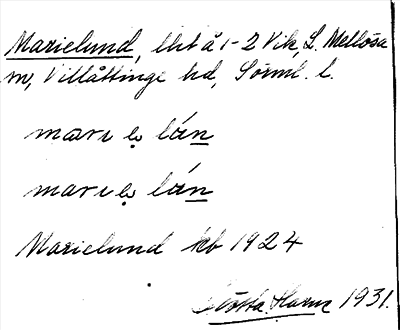 Marielund, lht å 1-2 Vik, L. Mellösa
sn, Villåttinge hd, Sörml. l.
lán
lán
Marielund kb 1924
Gösta 1931.